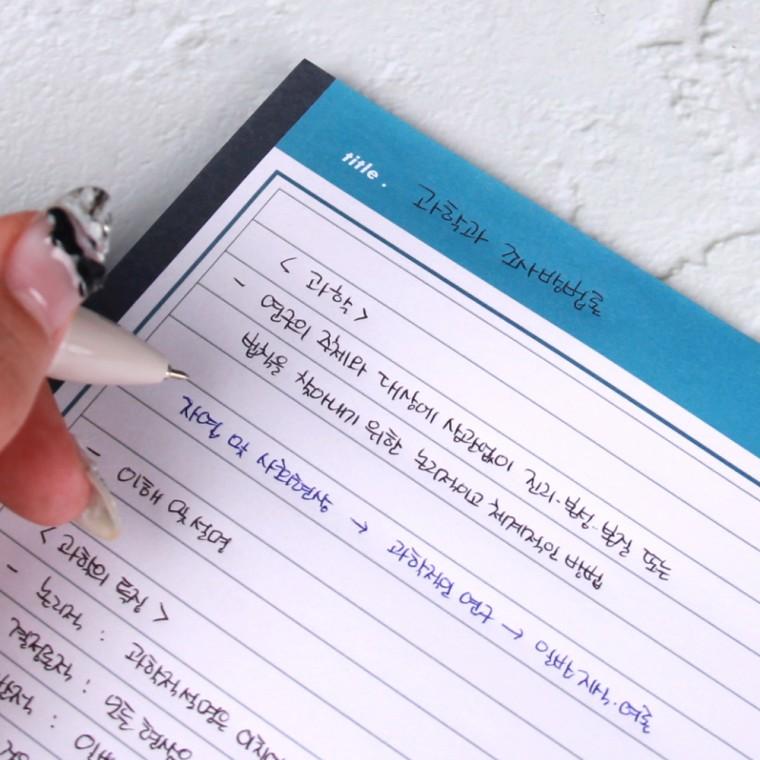 title. 과학과 조사방법론
< 과학 >
- 연구의 주제와 대상에 상관없이 진리·법칙 또는
법칙을 찾아내기 위한 논리적이고 체계적인 방법
자연 및 사회현상 → 과학적인 연구 → 일반지식·이론
- 이해 및 설명
< 과학의 특징 >
- 논리적 : 과학적 설명은
결정론적 : 모든 현상은